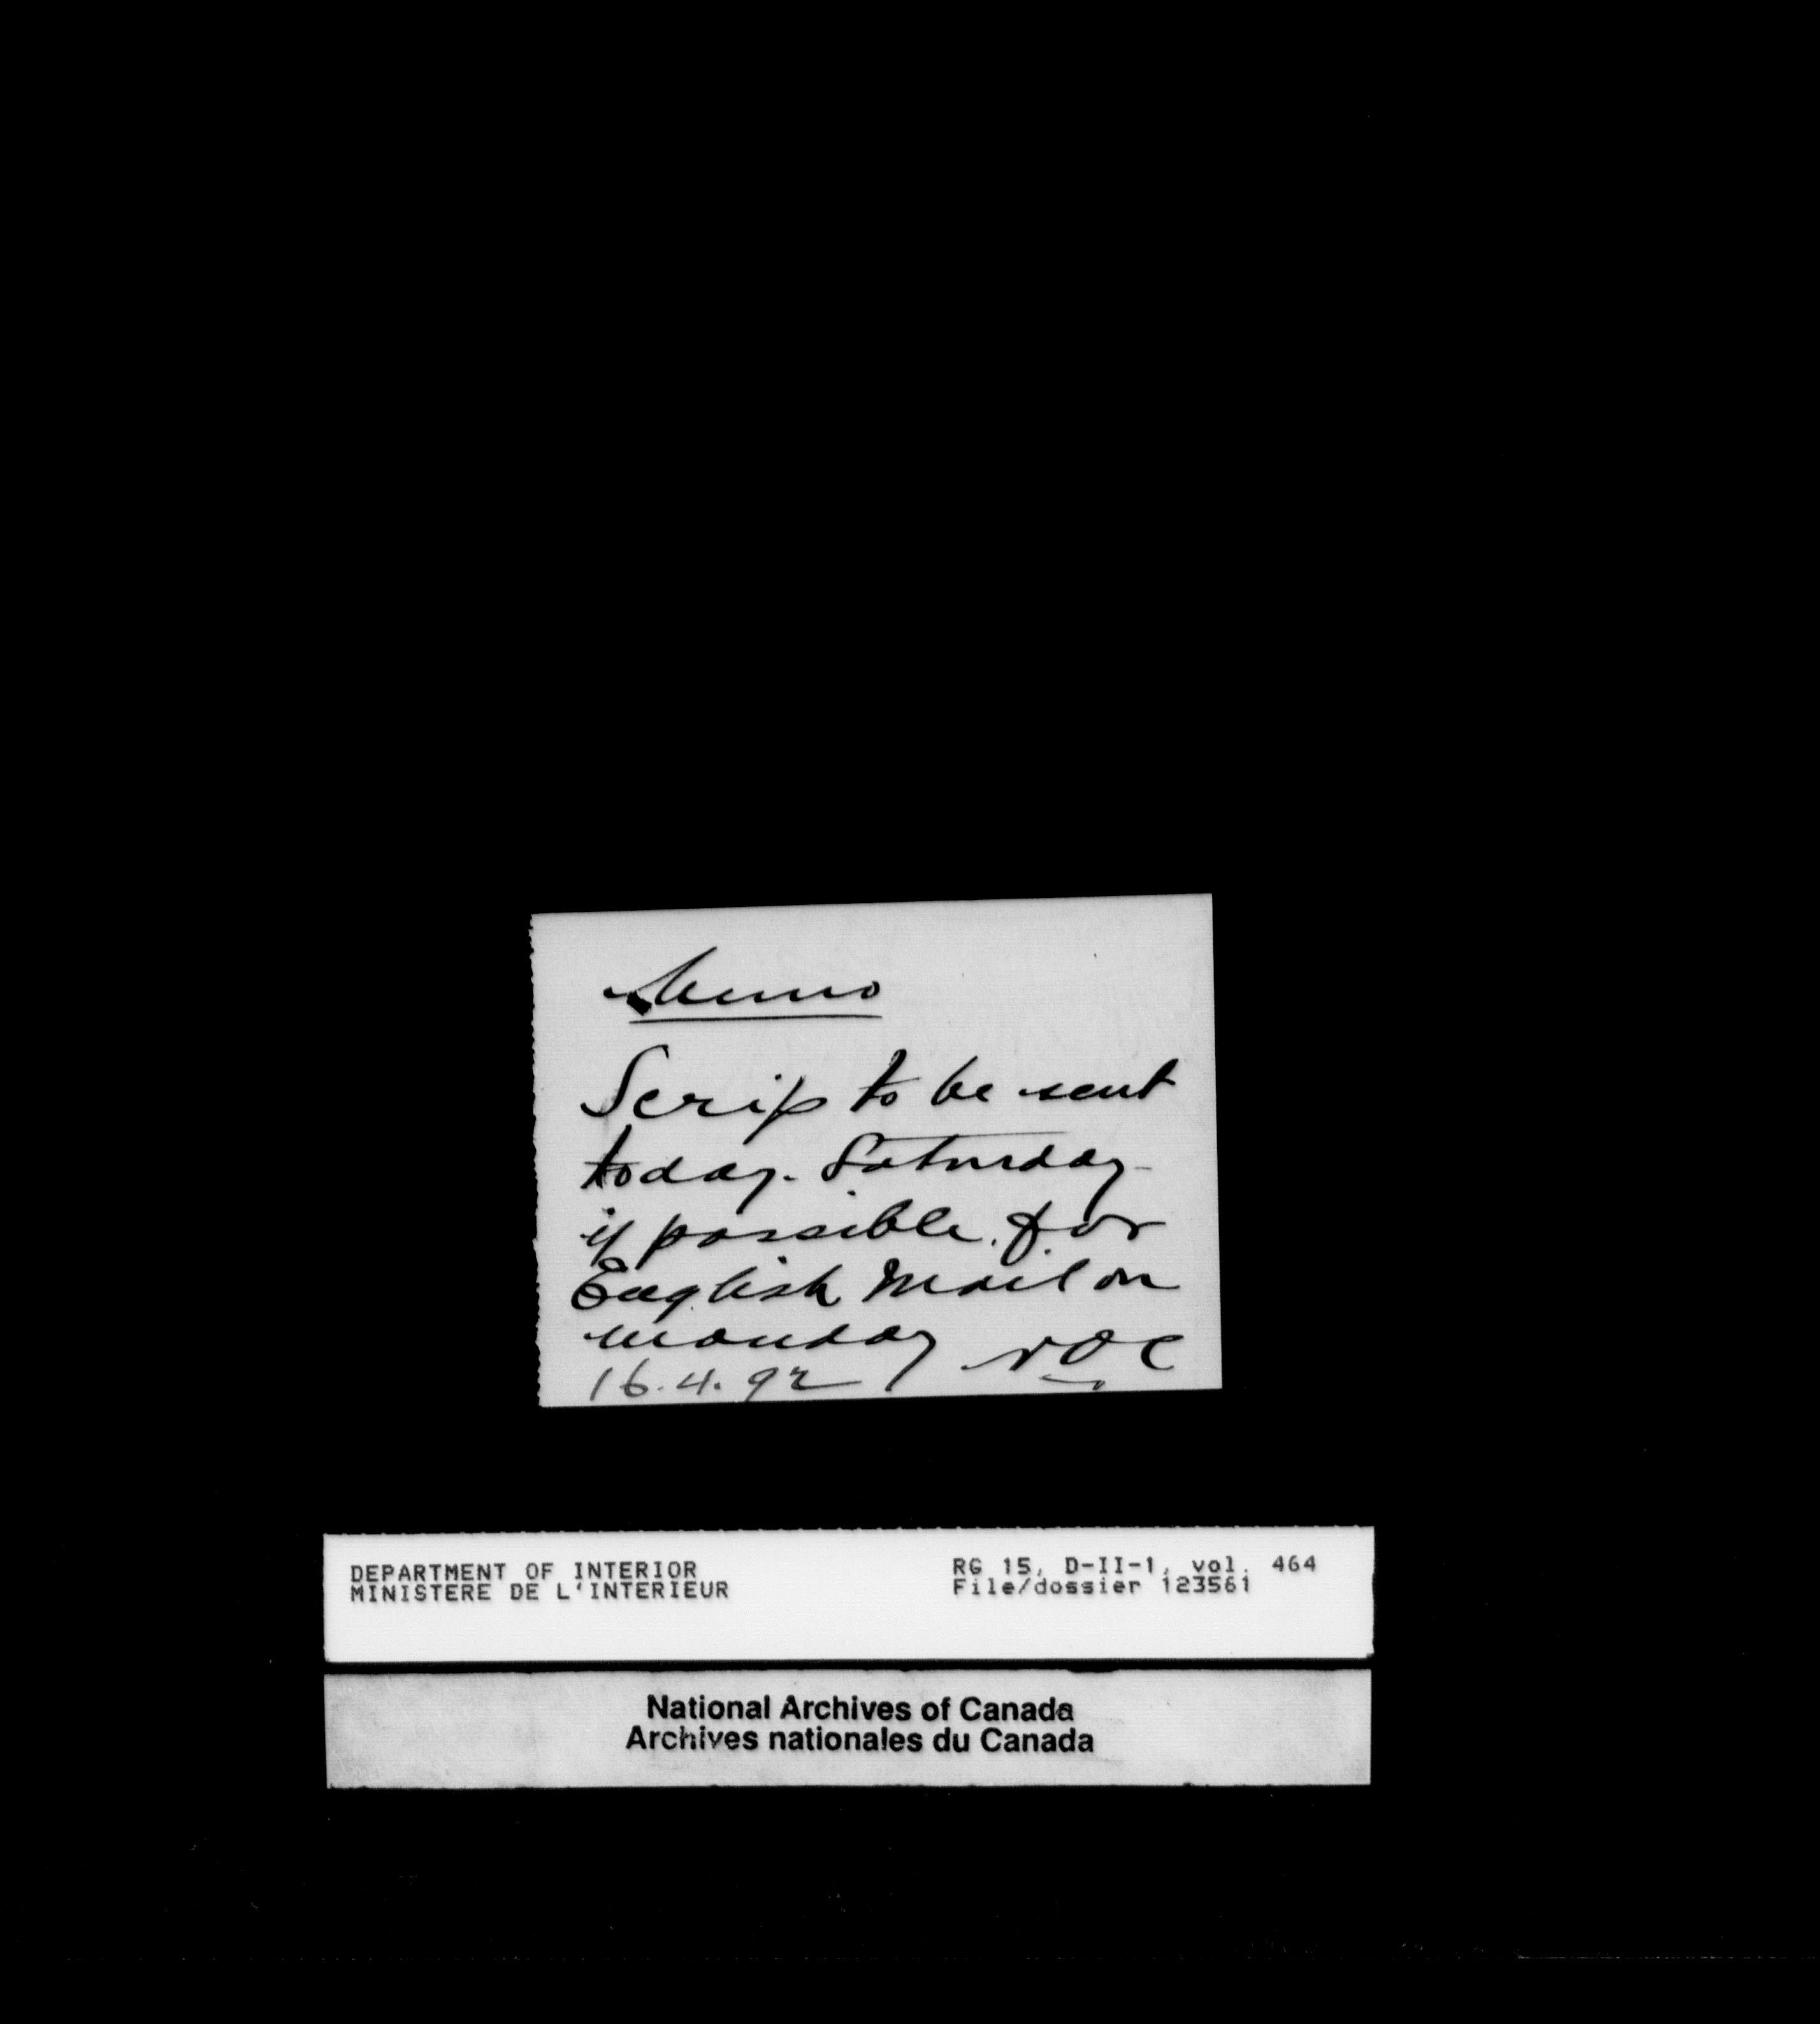 Memo
Scrip to be sent
today. Saturday
if possible. for
English Mail on
Monday
16.4.92
DEPARTMENT OF INTERIOR
MINISTERE DE L'INTERIEUR
RG 15, D-II-1, vol. 464
File/dossier 123561
National Archives of Canada
Archives nationales du Canada